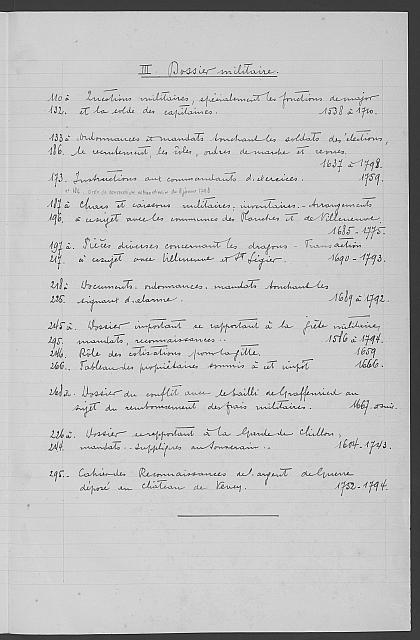 III. Dossier militaire.
110 à Questions militaires, spécialement les fonctions de major
132. et la solde des capitaines. 1538 à 1710.
133 à Ordonnances et mandats touchant les soldats des élections,
186. le recrutement, les rôles, ordres de marche et revues.
1637 à 1798.
173. Instructions aux commandants d'exercices. 1759.
187 à Chars et caissons militaires. inventaires. - Arrangements
196. à ce sujet avec les communes des Planches et de Villeneuve.
1685 - 1775.
197 à. Pièces diverses concernant les dragons - Transaction
217. à ce sujet avec Villeneuve et St Légier. 1690 - 1793.
218 à Documents. ordonnances. mandats touchant les
225. signaux d'alarme. 1689 à 1792.
245 à. Dossier important se rapportant à la giète militaire,
295. mandats, reconnaissances.. 1586 à 1794.
246. Rôle des cotisations pour la gitte. 1659
266. Tableau des propriétaires soumis à cet impôt 1666.
Dossier du conflit avec le bailli de Graffenried au
sujet du remboursement des frais militaires. 1667
226 à. Dossier se rapportant à la Garde de Chillon,
244. mandats - suppliques au Souverain.. 1604 - 1743.
295. - Cahier des Reconnaissances de l'argent de Guerre
déposé au Château de Vevey. 1752 - 1794.